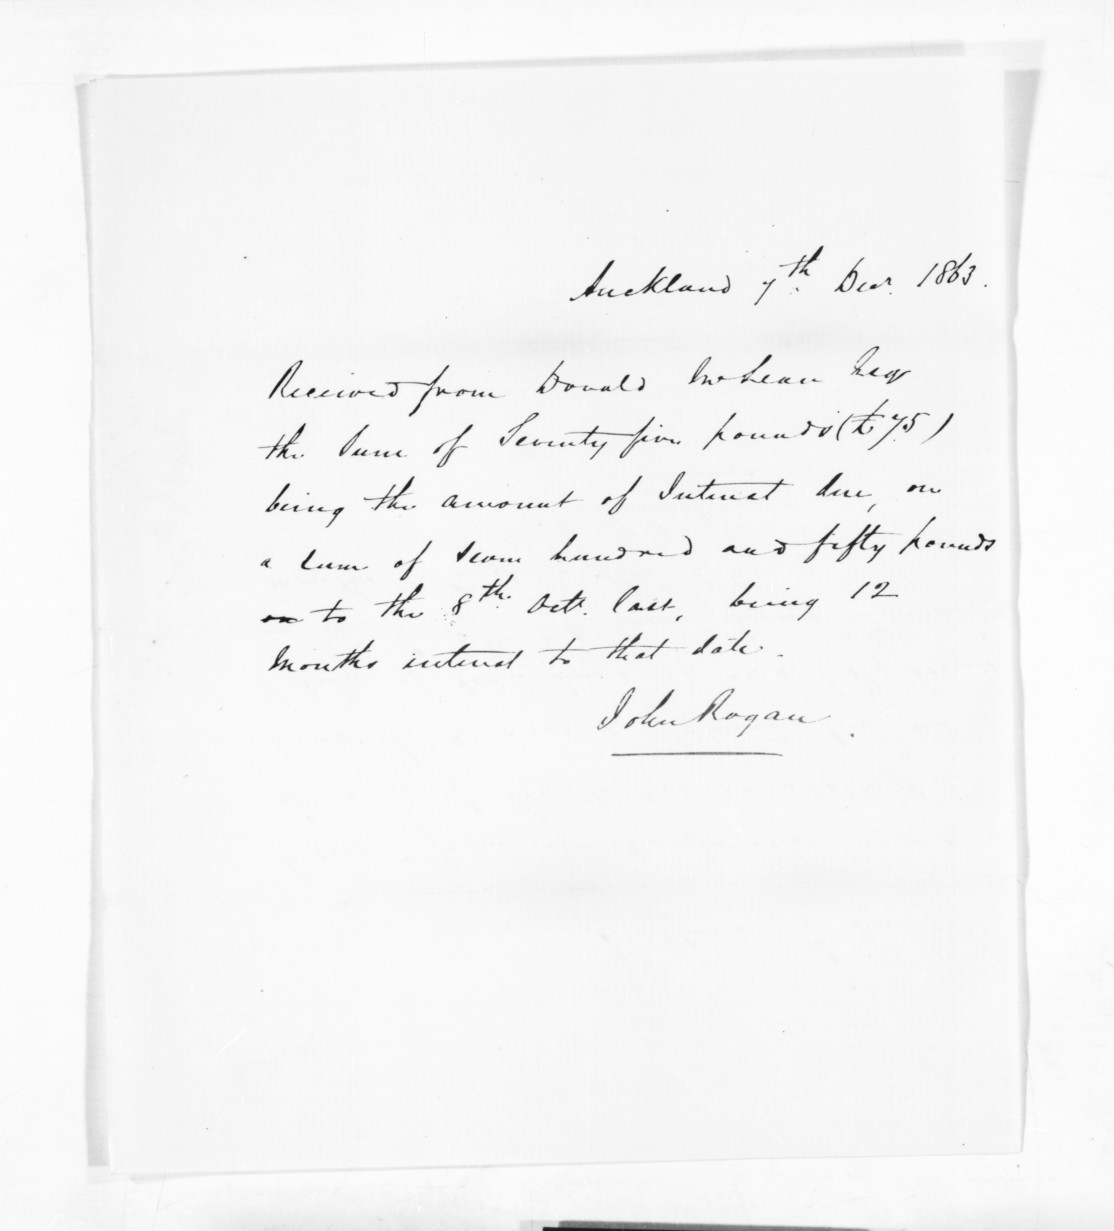 Auckland 7th. Decr. 1863.
Received from Donald McLean Esqr
the Sum of Seventy five pounds (£75)
being the amount of Interest due, on
a Sum of seven hundred and fifty pounds
on to the 8th. Octr. last, being 12
Months interest to that date.
John Rogan.